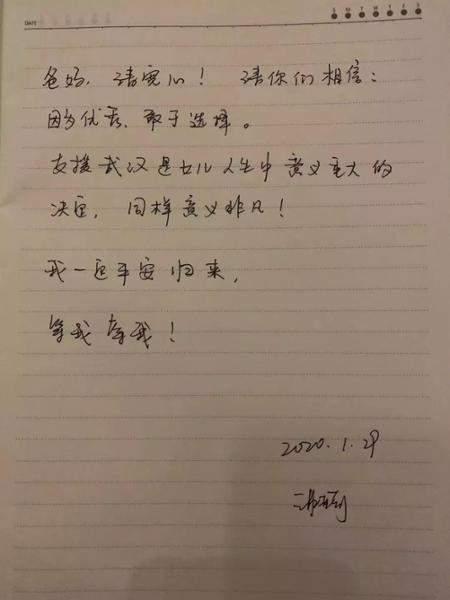 DATE
S M T W T F S
爸妈，请宽心！请你们相信：
因为优秀，敢于选择。
支援武汉是女儿人生中意义重大的
决定，同样意义非凡！
我一定平安归来，
等我等我！
2020.1.29